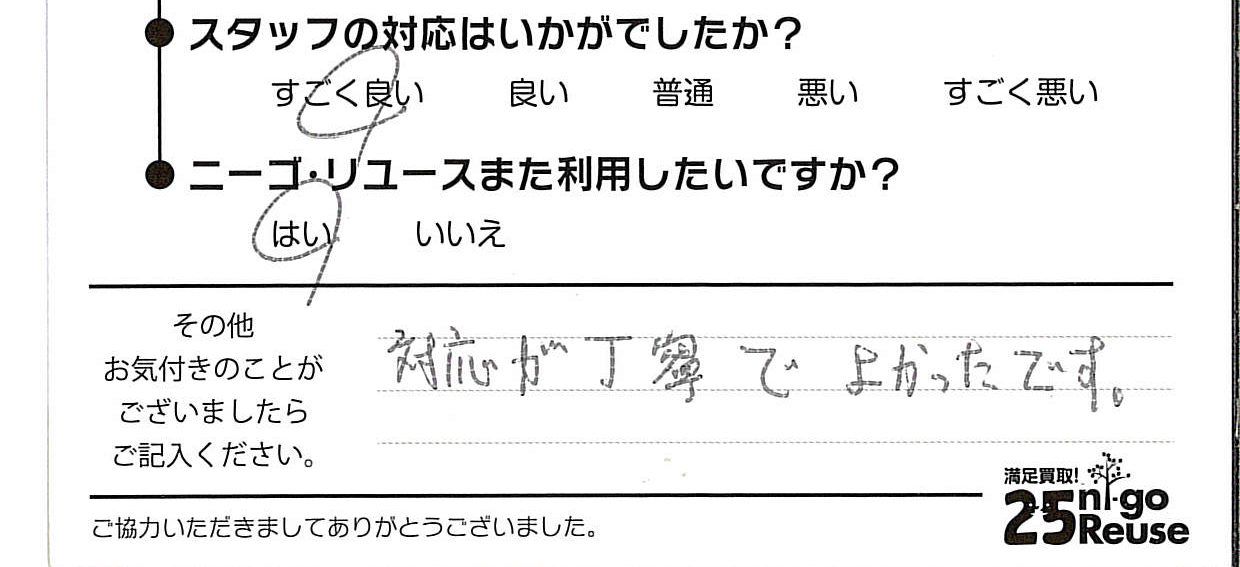 スタッフの対応はいかがでしたか?
すごく良い 良い 普通 悪い すごく悪い
ニーゴ・リユースまた利用したいですか?
はい いいえ
その他
お気付きのことが
ございましたら
ご記入ください。
対応が丁寧でよかったです。
満足買取!
25 ni-go
Reuse
ご協力いただきましてありがとうございました。